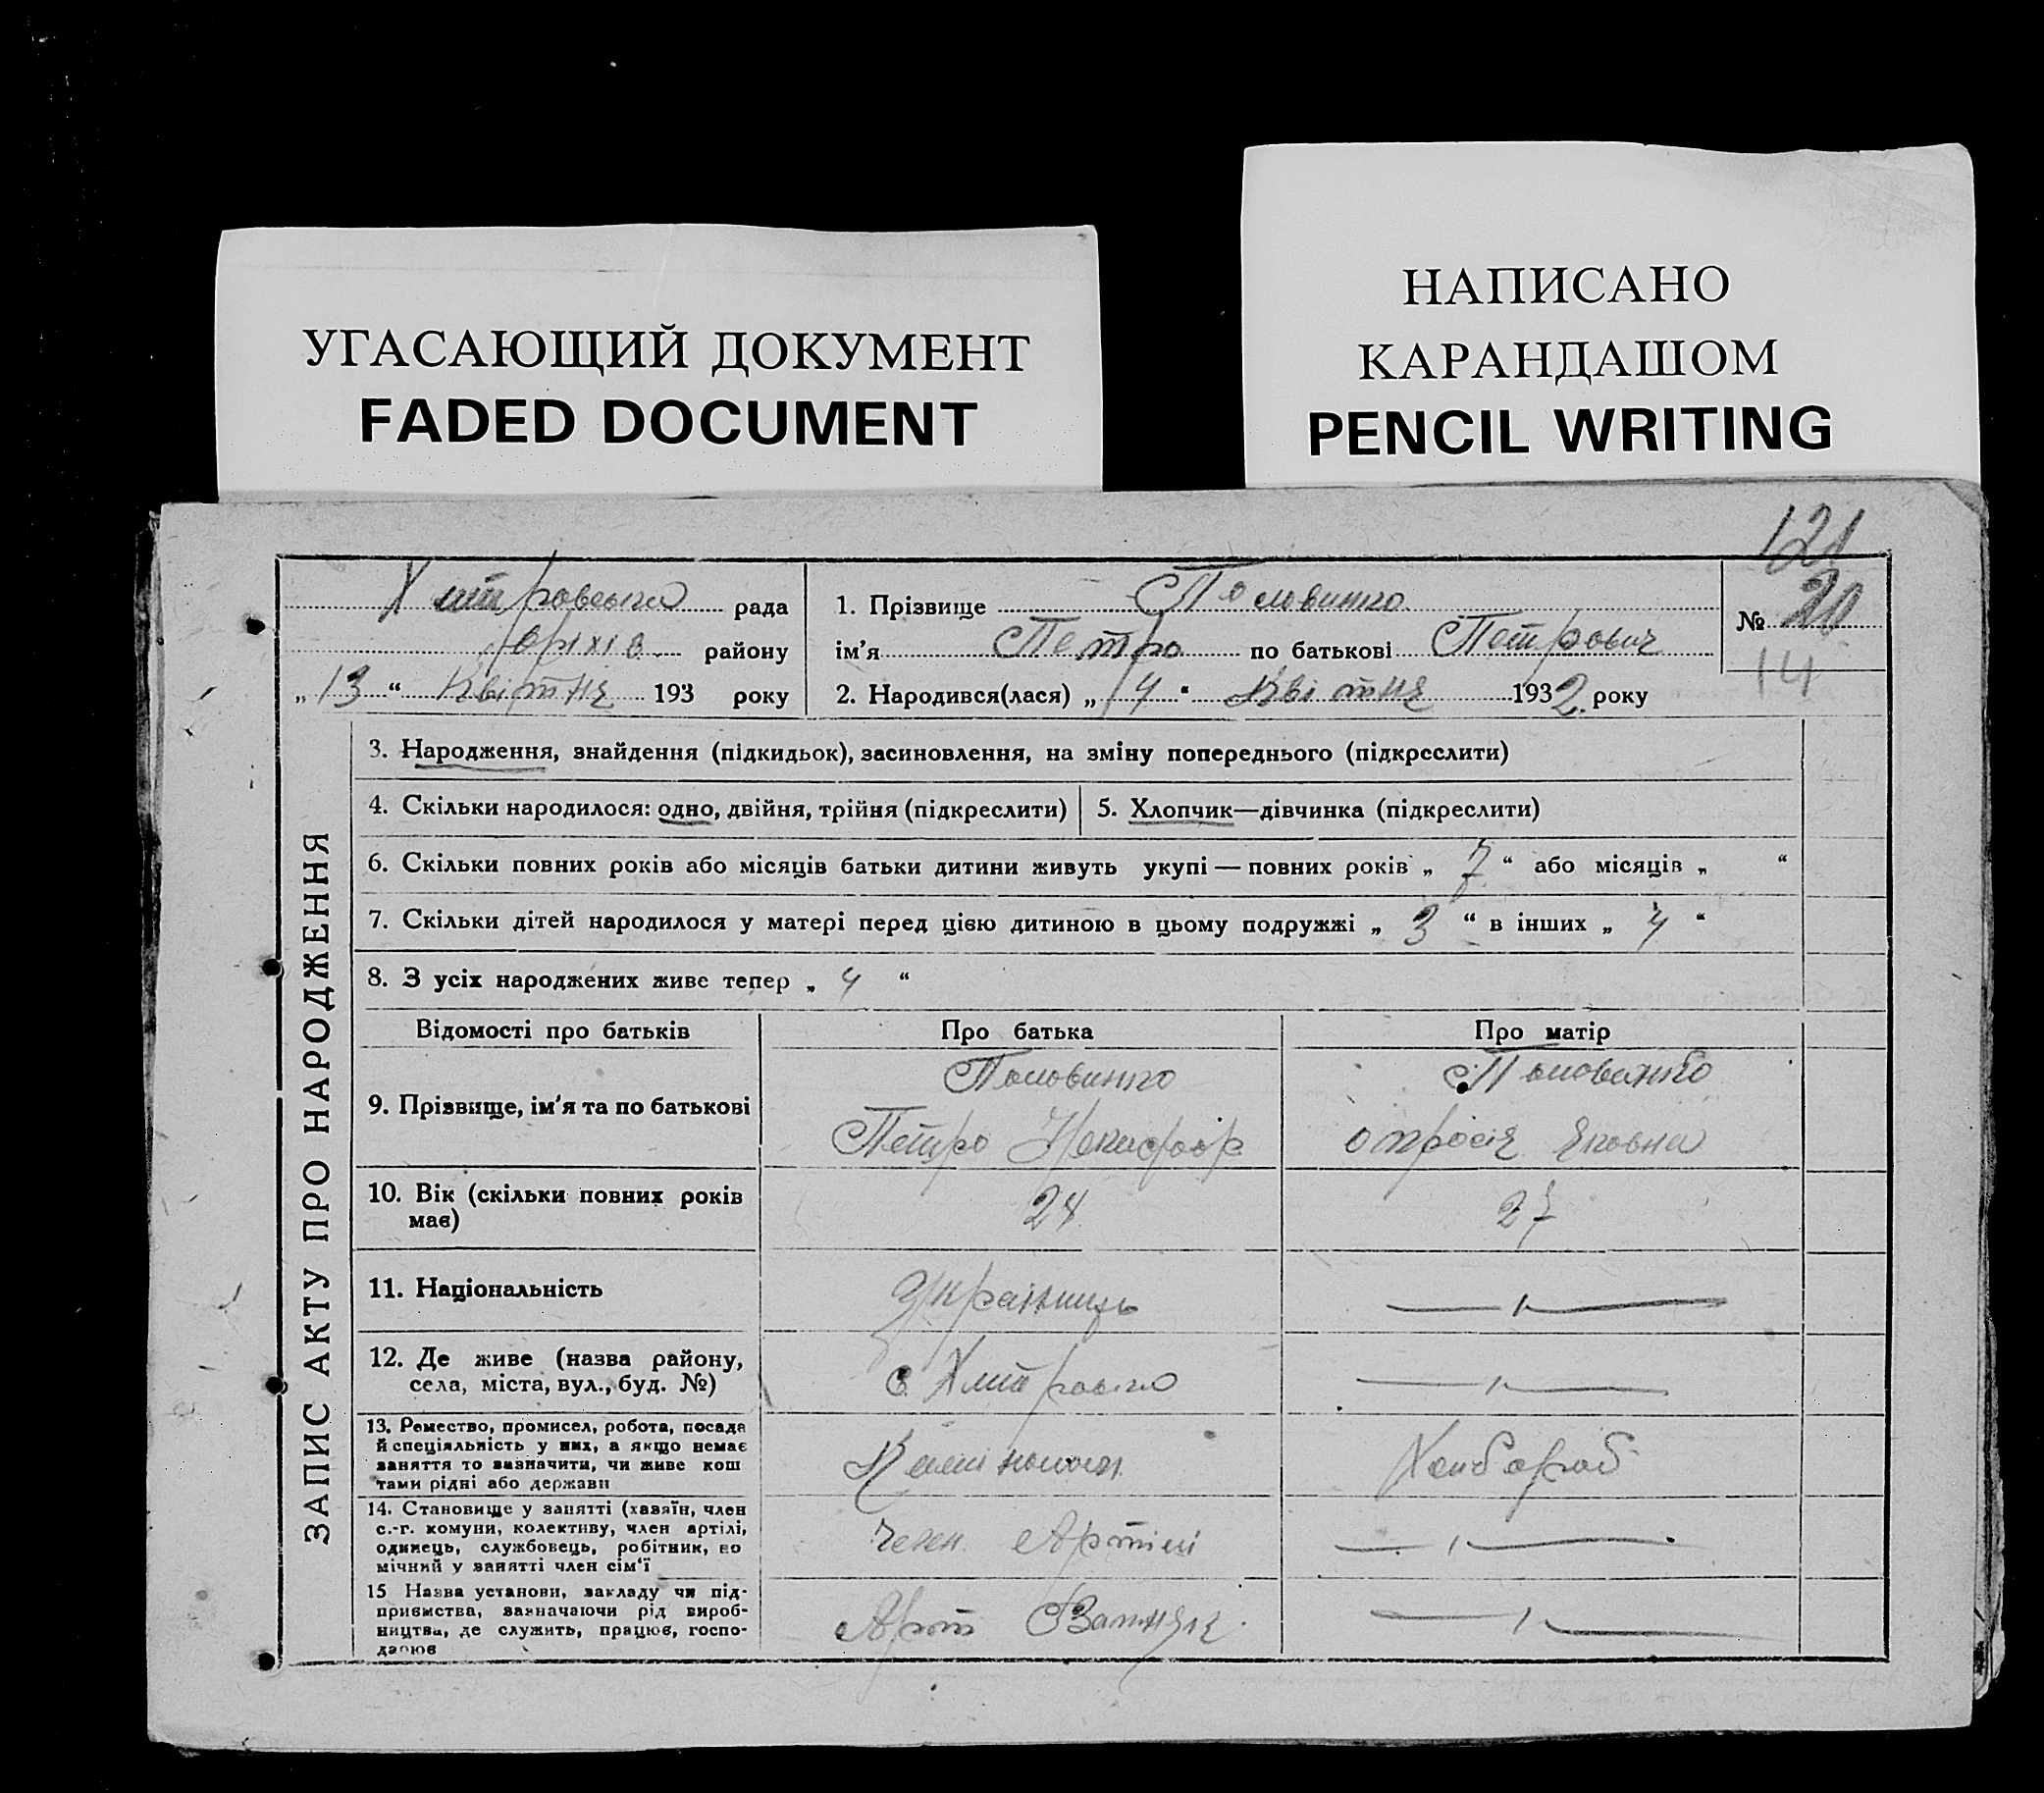 УГАСАЮЩИЙ ДОКУМЕНТ
FADED DOCUMENT
НАПИСАНО
КАРАНДАШОМ
PENCIL WRITING
121
рада
Оріхів. району
„ 13 “ Квітня 193 року
1. Прізвище Половинко
ім'я Петро по батькові Петрович
2. Народився(лася) „ 4 “ Квітня 1932 року
№ 20
14
ЗАПИС АКТУ ПРО НАРОДЖЕННЯ
3. Народження, знайдення (підкидьок), засиновлення, на зміну попереднього (підкреслити)
4. Скільки народилося: одно, двійня, трійня (підкреслити)
5. Хлопчик—дівчинка (підкреслити)
6. Скільки повних років або місяців батьки дитини живуть укупі — повних років „ 7 “ або місяців „ “
7. Скільки дітей народилося у матері перед цією дитиною в цьому подружжі „ 3 “ в інших „ 4 “
8. З усіх народжених живе тепер „ 4 “
Відомості про батьків Про батька Про матір
9. Прізвище, ім'я та по батькові
Половинко
Петро
Половинко
10. Вік (скільки повних років
має)
27
11. Національність
Українець
12. Де живе (назва району,
села, міста, вул., буд. №)
с.
13. Ремество, промисел, робота, посада
й спеціяльність у них, а якщо немає
заняття то зазначити, чи живе кош
тами рідні або держави
Хлібороб
14. Становище у занятті (хазяїн, член
с.-г. комуни, колективу, член артілі,
одинець, службовець, робітник, по
мічний у занятті член сім'ї
член Артілі
15 Назва установи, закладу чи під-
приємства, зазначаючи рід вироб-
ництва, де служить, працює, госпо-
дарює
Арт